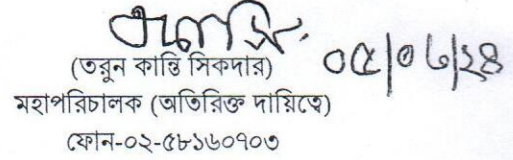 ০৫/০৬/২৪
(তরুন কান্তি সিকদার)
মহাপরিচালক (অতিরিক্ত দায়িত্বে)
ফোন-০২-৫৮১৬০৭০৩